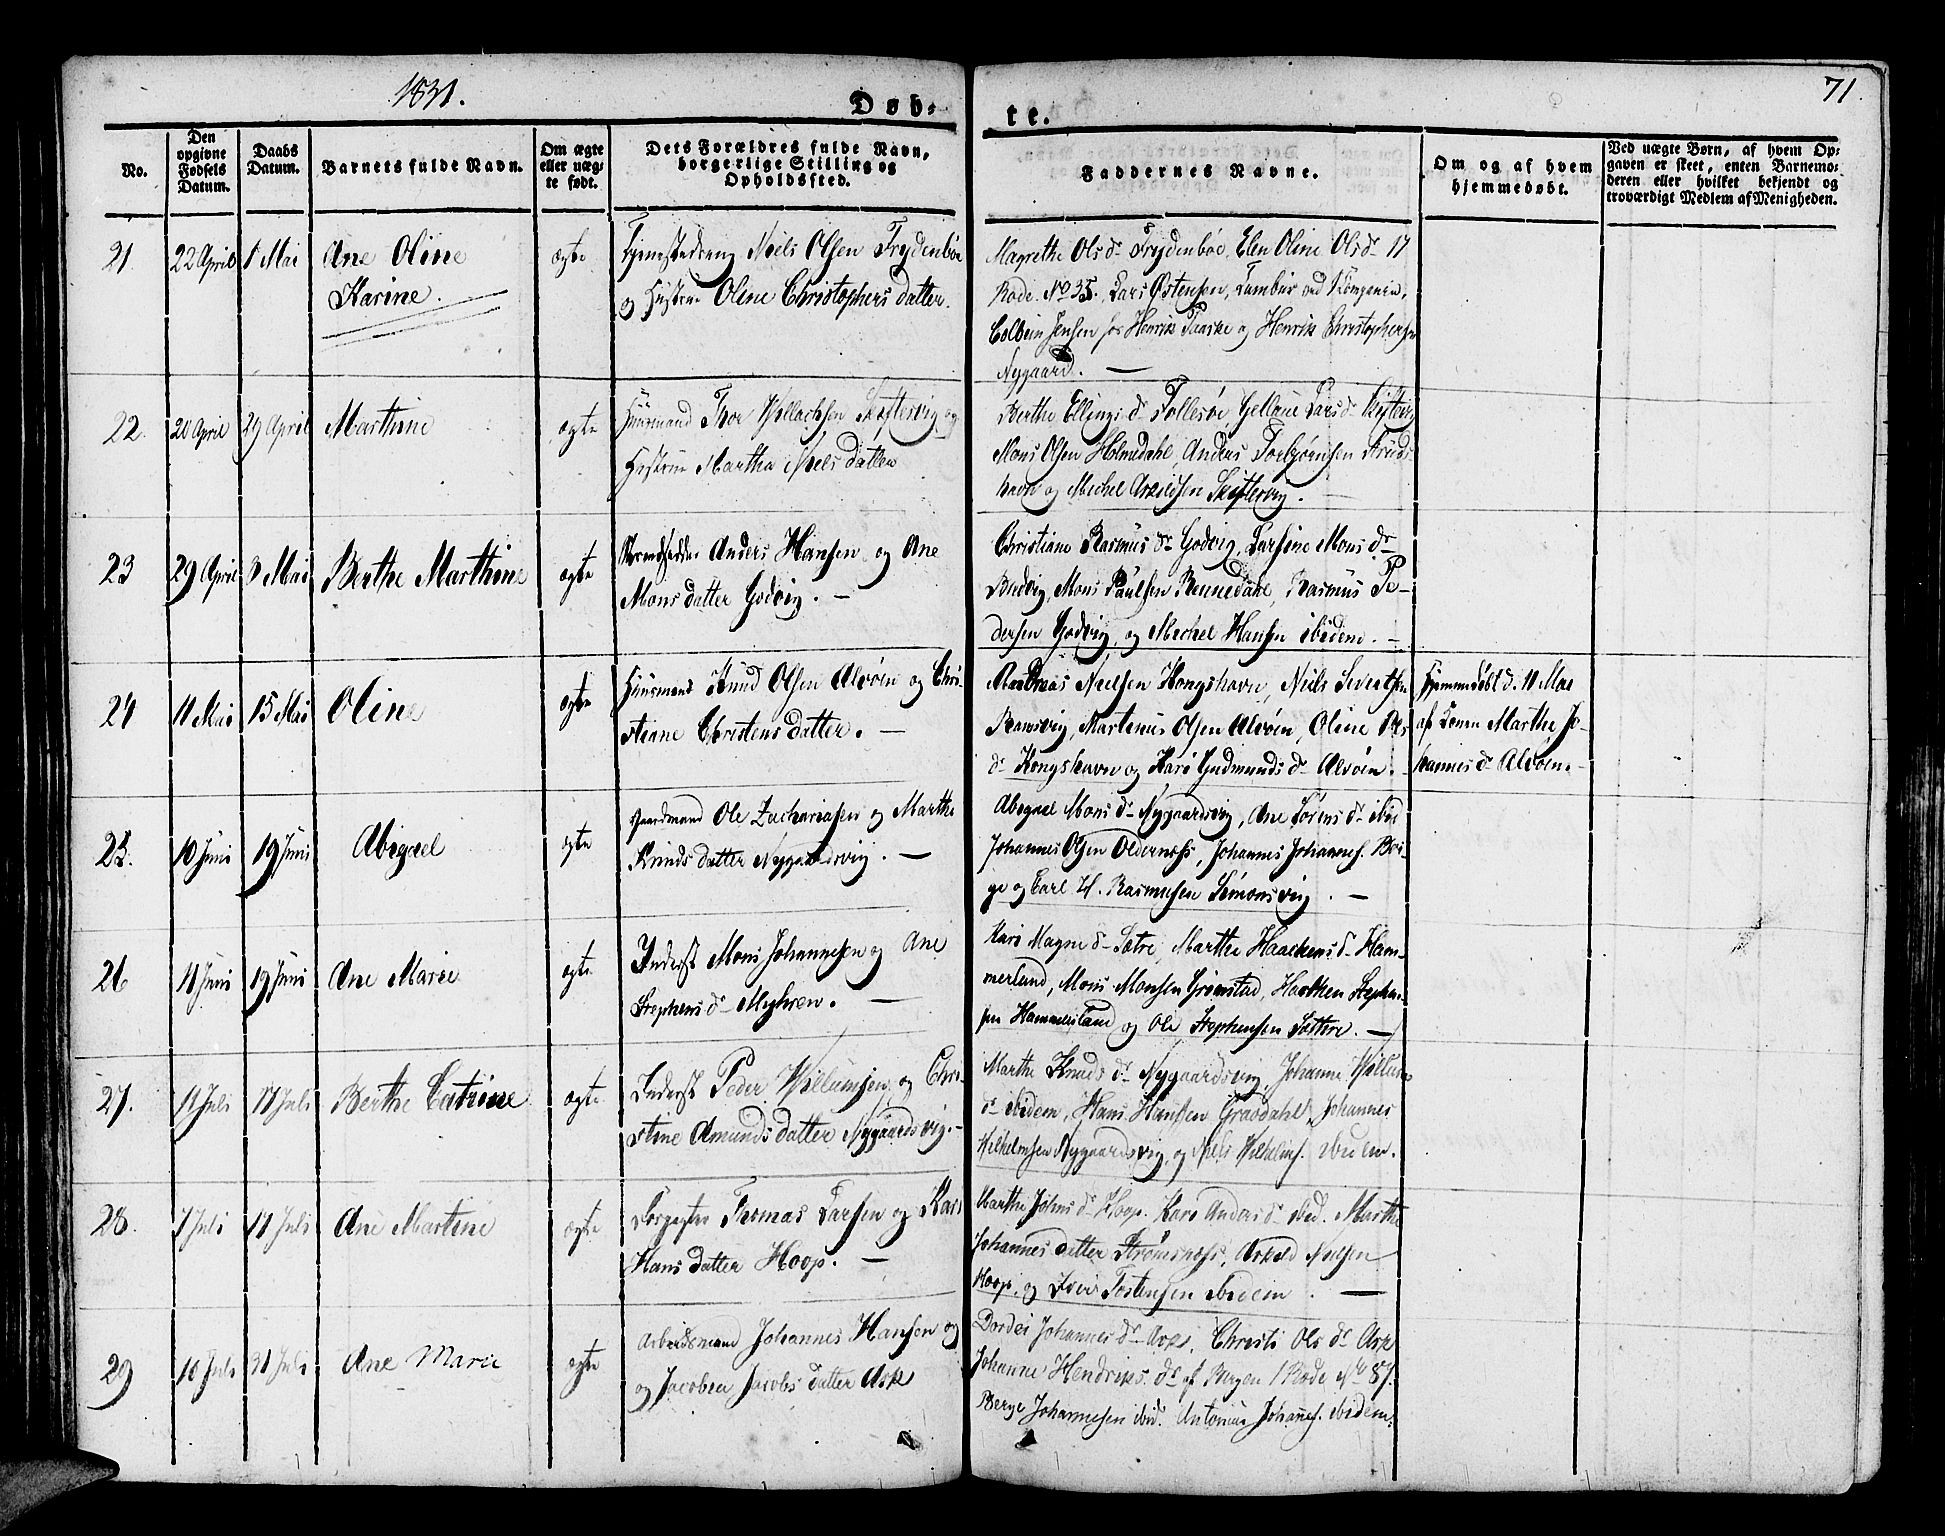 1831.
Døb-
te.
71
No.
Den opgivne Fødsels Datum.
Daabs Datum.
Barnets fulde Navn.
Om ægte eller uægte født.
Dets Forældres fulde Navn, borgerlige Stilling og Opholdssted.
Faddernes Navne.
Om og af hvem hjemmedøbt.
Ved uægte Børn, af hvem Opgaven er skeet, enten Barnemoderen eller hvilket bekjendt og troværdigt Medlem af Menigheden.
21. 22 April 1 Mai Ane Oline Karine. ægte
Niels Olsen Frydenböe
og Hustrue Oline Christophers datter.
Magrethe Ols dr Frydenböe, Elen Oline Ols dr 17
Rode No 35. Lars Østensen, Tambur ved Kompanie,
Colbein Jensen for Henrik Paaske og Henrik Christophersen
Nygaard. —
22. 20 April 29 April Marthine ægte
Huusmand Thor Skiftesvig og
Hustrue Martha Niels datter
Berthe Ellings dr Follesöe, Lars dr
Mons Olsen Holmedahl, Anders Torbjörnsen
havn og Mechel Skiftesvig.
23 29 April 3 Mai Berthe Marthine ægte
Strandsidder Anders Hansen og Ane
Mons datter Godvig. —
Christiane Rasmus dr Godvig, Larsine Mons dr
Mons Paulsen Rasmus Pe-
dersen Godvig, og Mechel Hansen ibidem. —
24 11 Mai 15 Mai Oline ægte
Huusmand Knud Olsen Alvöen og Chri-
stiane Christens datter. —
Andreas Nielsen Kongshavn, Niels Sivertsen
Ramsvig, Martenus Olsen Alvöen, Oline
dr Kongshavn og Kari Gudmunds dr Alvöen. —
Hjemmedöbt d. 11 Mai
af Konen Marthe Jo-
hannes dr Alvöen. —
25. 10 Juni 19 Juni Abigael ægte
Gaardmand Ole Zachariasen og Marthe
Knuds datter Nygaardsvig. —
Abegael Mons dr Nygaardsvig, Ane Sörens dr ibid
Johannes Olsen Oldernæss, Johannes Johannes.
og Carl H. Rasmusen Simonsvig. —
26 11 Juni 19 Juni Ane Marie ægte
Inderst Mons Johannesen og Ane
Stephens dr Myhren. —
Kari Magne dr Sætre, Marthe Haachens dr Ham-
merland, Mons Monsen Grimstad, Haachen Stephen-
sen Hammersland og Ole Stephensen Sættere. —
27. 11 Juli 17 Juli Berthe Catrine ægte
Inderst Peder Willumsen og Chri-
stine Amunds datter Nygaardsvig. —
Marthe Knuds dr Nygaardsvig, Johanne Willums
dr ibidem, Hans Hansen Graadahl, Johannes
Wilhelmsen Nygaardsvig og Niels Wilhelms. ibidem.
28. 7 Juli 17 Juli Ane Martine ægte
Forpagter Thomas Larsen og Kari
Hans datter Hoop. —
Marthe Johns dr Hoop. Kari Anders dr ibid. Marthe
Johannes datter Strömsnæss, Nielsen
Hoop, og Iver Tostensen ibidem. —
29 10 Juli 31 Juli Ane Marie ægte
Arbeidsmand Johannes Hansen og
og Jacobea Jacobs datter Ask
Dordei Johannes dr Ask, Christi Ols dr Ask
Johanne Hendriks dr af Bergen 1 Rode No 87.
Berge Johannesen ibid. Antonius Johannes. ibidem.